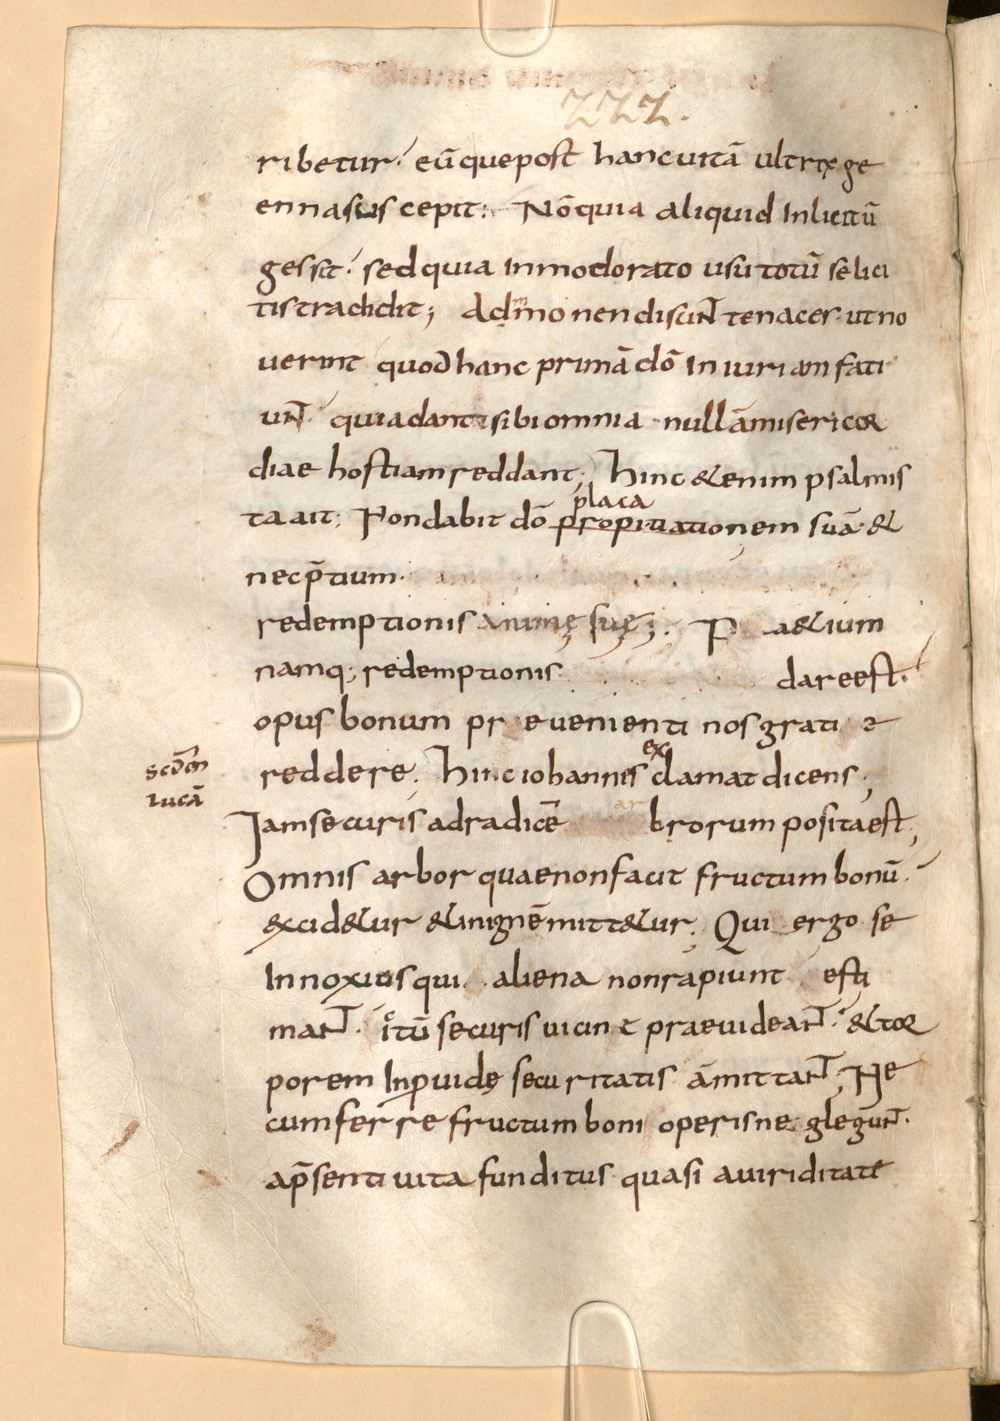 222.
ribetur. eū que post hanc uitā ultrix ge
ennasus cepit; Nō quia aliquid Inlicitū
gessit. sed quia inmodorato usu totū se lici
tis tradidit; Admonendi sunt tenaces. ut no
uerint quod hanc primā dō Iniuriam fati
unt. quia danti sibi omnia nullā misericor
diae hostiam reddant; hinc & enim psalmis
ta ait; Non dabit dō propitiationem suā. &
placa
nec p̄tium.
redemptionis animę suę; P a&ium
namq; redemptionis dare est.
opus bonum pr euenienti nos grati e
reddere. hinc iohannis exclamat dicens;
scdm
lucā
Iam securis ad radicē ar brorum posita est;
Omnis arbor quae non facit fructum bonū.
excid&ur & in ignē mitt&ur; Qui ergo se
Innoxius qui aliena non rapiunt esti
mant. itū securis uicin e praeuideant. & tor
porem Inprouidę securitatis āmittant; Ne
cum ferre fructum boni operis neglegunt.
a p̄senti uita funditus quasi auiriditate